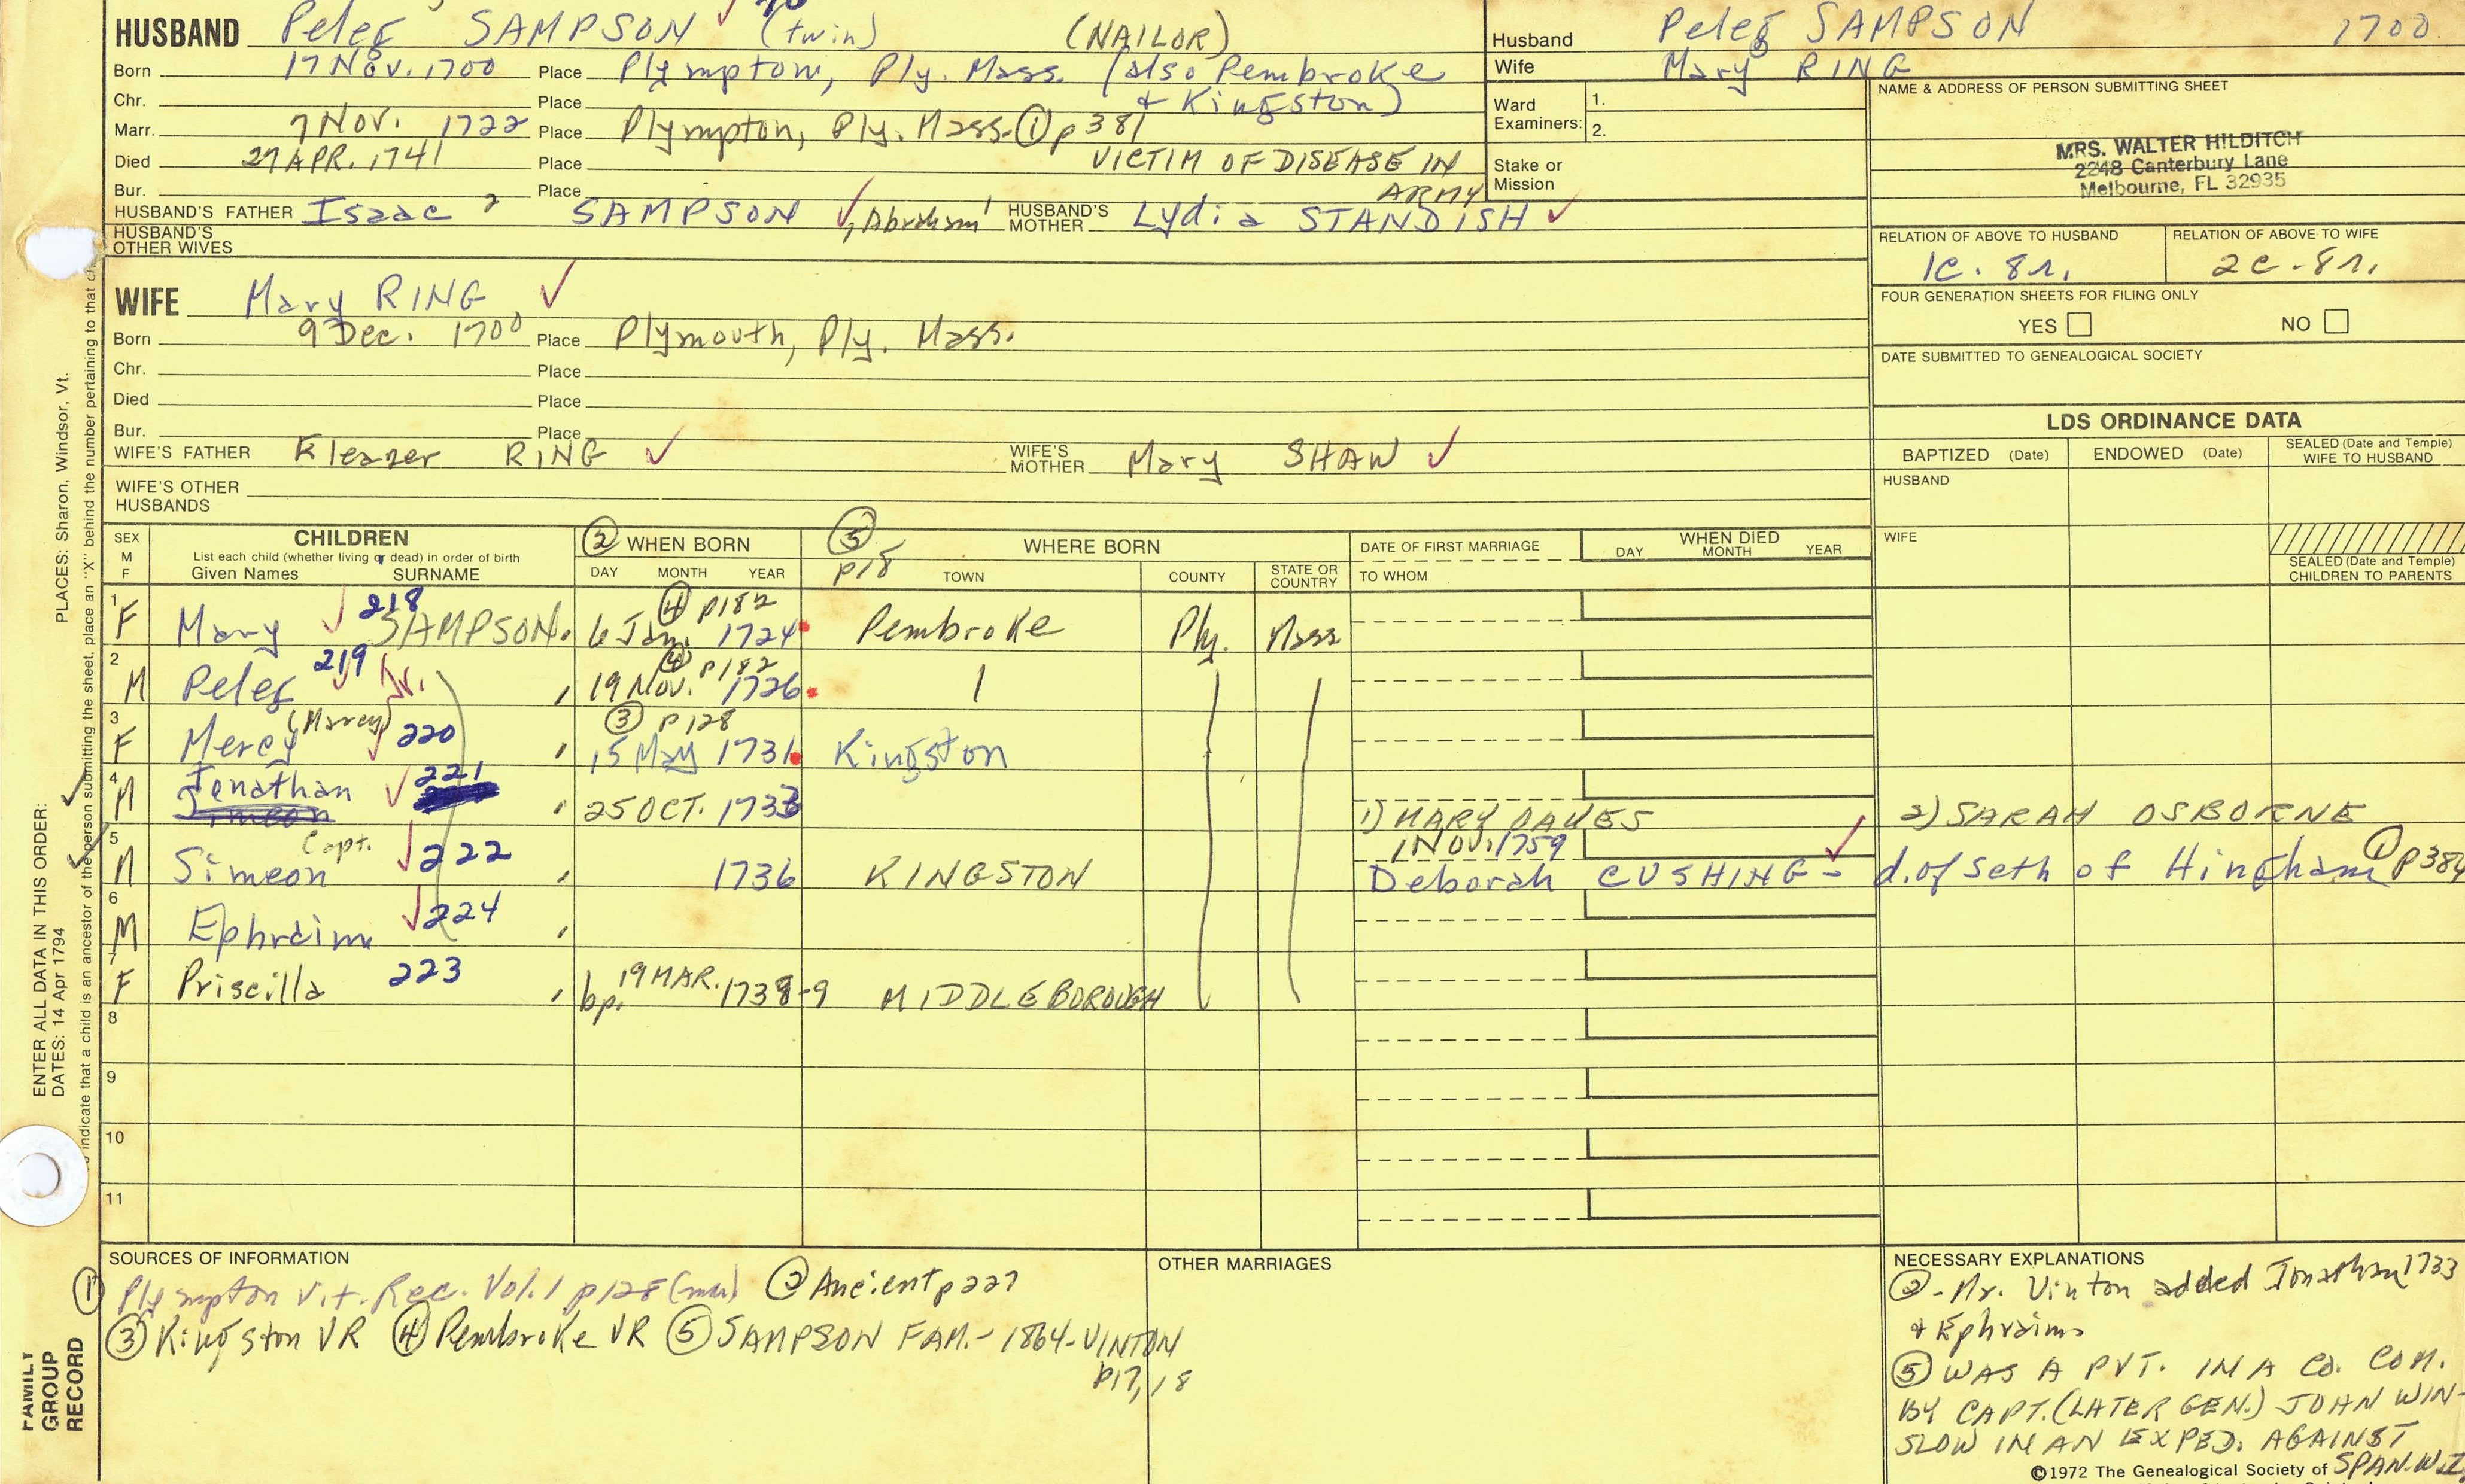 HUSBAND Peleg SAMPSON (twin) (NAILOR)
Born 17 Nov. 1700 Place Plympton, Ply. Mass. (also Pembroke
Chr. Place & Kingston)
Marr. 7 Nov. 1722 Place Plympton, Ply. Mass. ① p 381
Died 27 APR. 1741 Place VICTIM OF DISEASE IN
Bur. Place ARMY
HUSBAND'S FATHER Isaac 2 SAMPSON ✓, Abraham 1 HUSBAND'S MOTHER Lydia STANDISH ✓
HUSBAND'S OTHER WIVES
Husband Peleg SAMPSON 1700
Wife Mary RING
Ward Examiners: 1.
2.
Stake or Mission
NAME & ADDRESS OF PERSON SUBMITTING SHEET
MRS. WALTER HILDITCH
2248 Canterbury Lane
Melbourne, FL 32935
RELATION OF ABOVE TO HUSBAND RELATION OF ABOVE TO WIFE
1c. 8r. 2c - 8r.
FOUR GENERATION SHEETS FOR FILING ONLY
YES NO
DATE SUBMITTED TO GENEALOGICAL SOCIETY
WIFE Mary RING ✓
Born 9 Dec. 1700 Place Plymouth, Ply. Mass.
Chr. Place
Died Place
Bur. Place
WIFE'S FATHER Eleazer RING ✓ WIFE'S MOTHER Mary SHAW ✓
WIFE'S OTHER HUSBANDS
LDS ORDINANCE DATA
BAPTIZED (Date) ENDOWED (Date) SEALED (Date and Temple) WIFE TO HUSBAND
HUSBAND
WIFE
SEALED (Date and Temple) CHILDREN TO PARENTS
SEX M F CHILDREN ② WHEN BORN ⑤ p18 WHERE BORN DATE OF FIRST MARRIAGE WHEN DIED
List each child (whether living or dead) in order of birth
Given Names SURNAME DAY MONTH YEAR TOWN COUNTY STATE OR COUNTRY TO WHOM DAY MONTH YEAR
1 F Mary ✓ 218 SAMPSON. 6 Jan. 1724 ④ p182 Pembroke Ply. Mass
2 M Peleg 219 ✓ Jr. 19 Nov. 1726 ④ p182
3 F Mercy (Marcy) ✓ 220 15 May 1731 ③ p128 Kingston
4 M Jonathan ✓ 221 25 OCT. 1733 1) MARY DAWES 2) SARAH OSBORNE
5 M Capt. Simeon ✓ 222 1736 KINGSTON 1 NOV. 1759 Deborah CUSHING - ✓ d. of Seth of Hingham ① p 384
6 M Ephraim ✓ 224
7 F Priscilla 223 bp. 19 MAR. 1738-9 MIDDLEBOROUGH
8
9
10
11
SOURCES OF INFORMATION
① Plympton Vit. Rec. Vol. 1 p128 (mar) ② Ancient p227
③ Kingston VR ④ Pembroke VR ⑤ SAMPSON FAM. - 1864 - VINTON
p17, 18
OTHER MARRIAGES
NECESSARY EXPLANATIONS
② - Mr. Vinton added Jonathan 1733
& Ephraim
⑤ WAS A PVT. IN A CO. COM.
BY CAPT. (LATER GEN.) JOHN WIN-
SLOW IN AN EXPED. AGAINST
SPAN. W.I.
©1972 The Genealogical Society of
ENTER ALL DATA IN THIS ORDER:
DATES: 14 Apr 1794 PLACES: Sharon, Windsor, Vt.
indicate that a child is an ancestor of the person submitting the sheet, place an "X" behind the number pertaining to that
FAMILY
GROUP
RECORD